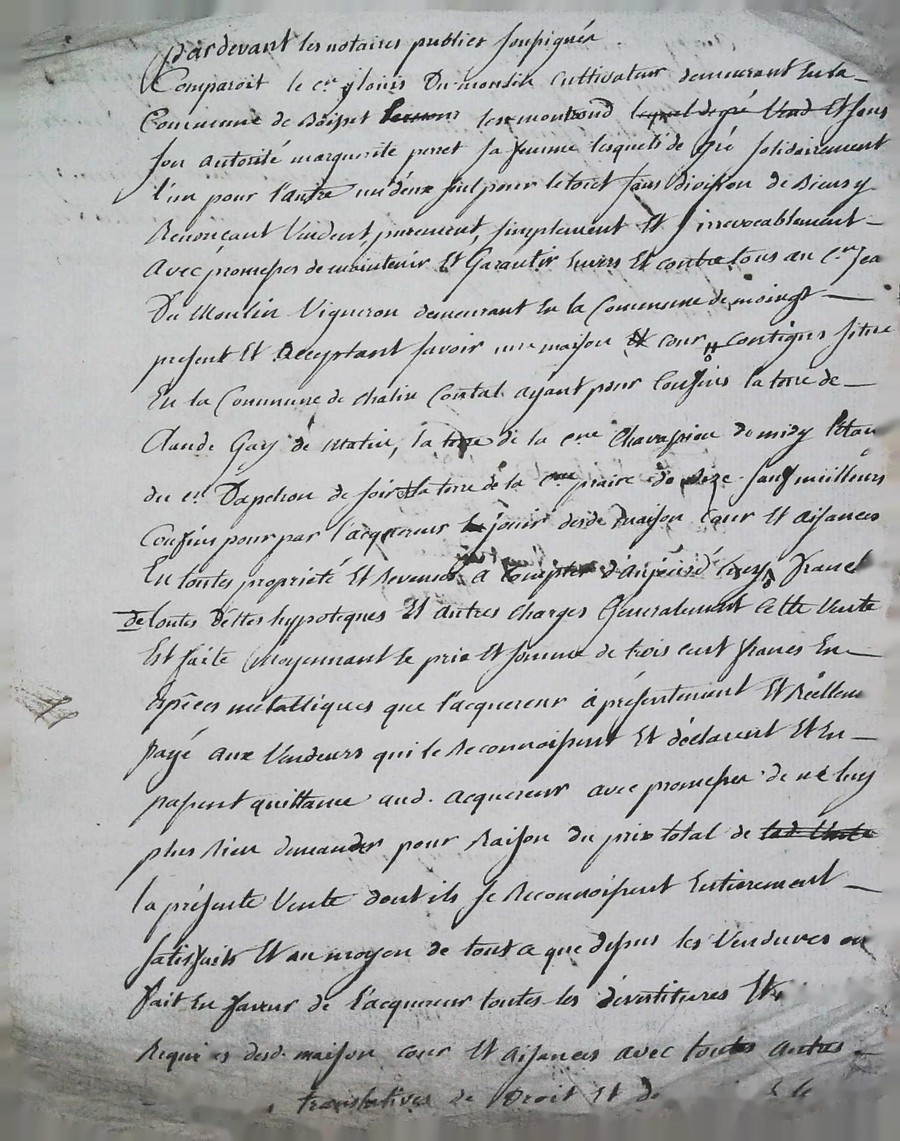 Pardevant les notaires publics soussignés
Comparoit le c.en Du moulin cultivateur demeurant en la
Commune de Boisset les montrond lequel de gré Vend Et sous
son autorité marguerite perret sa femme lesquels de gré solidairement
l'un pour l'autre un d'eux seul pour le tout sans division de Biens y
Renonçant Vendent purement, simplement Et irrevocablement
avec promesses de maintenir Et Garantir Envers Et contre tous au c.en Jea
Du Moulin Vigneron demeurant En la Commune de moingt
present Et acceptant savoir une maison Et cour contigue situé
En la Commune de chalin ayant pour Confins la terre de
Claude Gay de Matin, la terre de la c.ne Chavassieu de midy l'etan
du c.en Dapchon de soir Et la terre de la c.ne praire de Bize sauf meilleurs
Confins pour par l'acquereur jouir desd. maison Cour Et aisances
En toutes propriété Et revenus a compter d'aujourd'huy, Franc
de toutes dettes hypoteques Et autres charges Generalement Cette Vente
Est faite moyennant le prix Et somme de trois cent francs En
Espèces metalliques que l'acquereur à présentement Et Réellem
payé aux Vendeurs qui le Reconnoissent Et déclarent Et En
passent quittance aud. acquereur avec promesse de ne luy
plus Rien demander pour Raison du prix total de lad. Vente
la présente Vente dont ils se Reconnoissent Entierement
satisfaits Et au moyen de tout a que dessus les Vendeurs on
fait En faveur de l'acquereur toutes les devestitures Et
Requi es desd. maison cour Et aisances avec toutes autres
translatives de Droit Et de